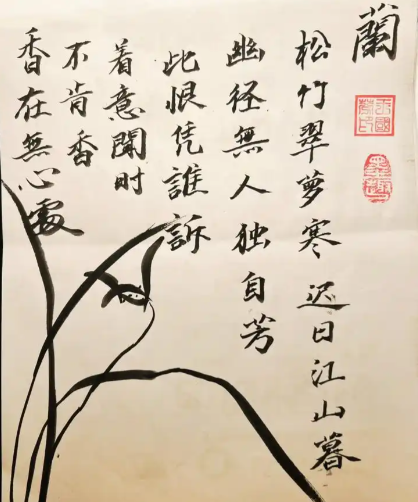 蘭
松竹翠萝寒迟日江山暮
幽径無人独自芳
此恨凭誰訴
着意聞时
不肯香
香在無心處